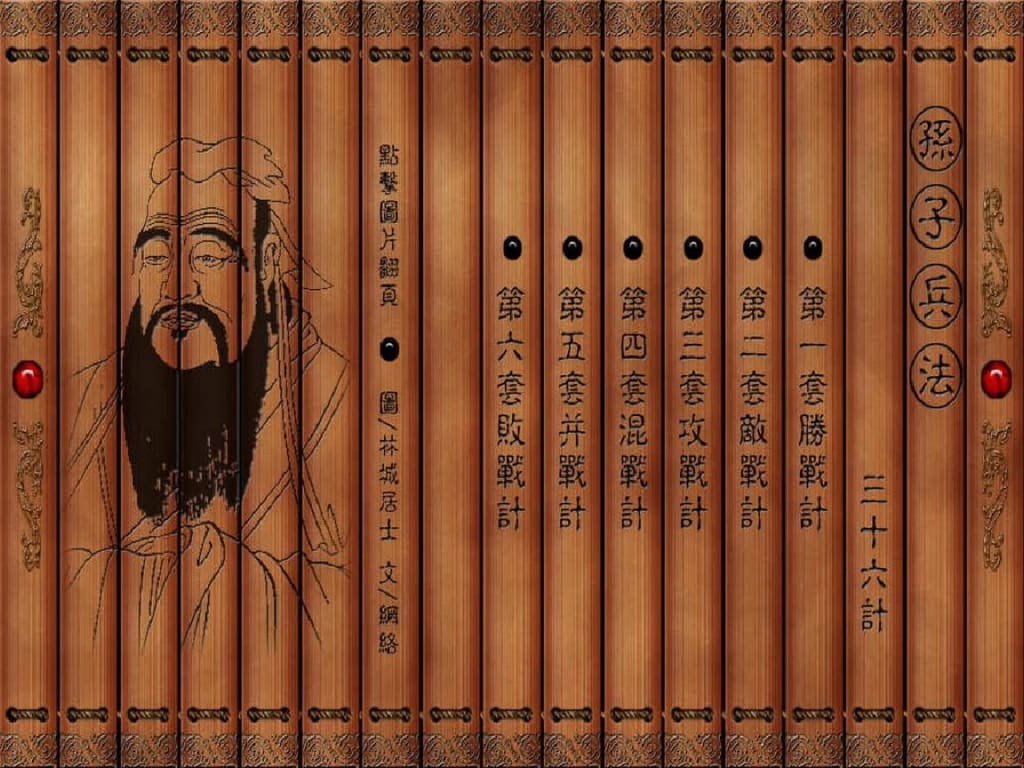 孫子兵法
三十六計
第一套勝戰計
第二套敵戰計
第三套攻戰計
第四套混戰計
第五套并戰計
第六套敗戰計
點擊圖片翻頁 圖/林城居士 文/網絡